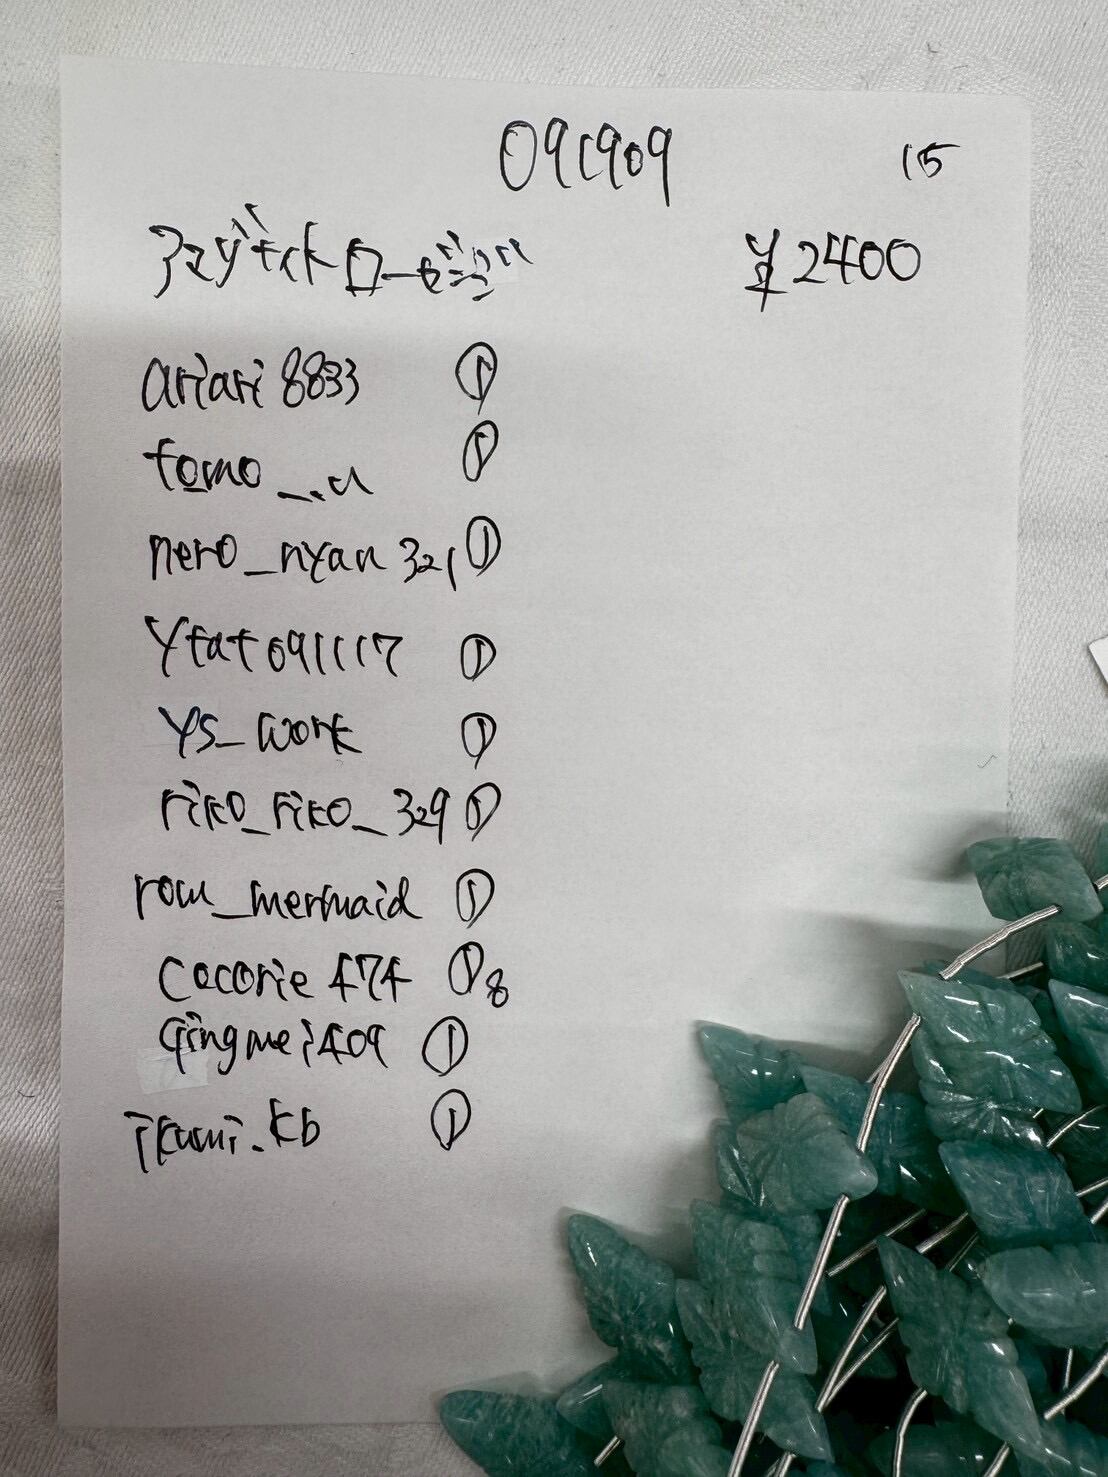 091909 15
アマゾナイトロービング ¥2400
ariari8833 ①
tomo_..u ①
nero_nyan321 ①
Ytat091117 ①
YS_work ①
riko_riko_329 ①
rom_mermaid ①
cocorie474 ① 8
qingmei409 ①
ikumi.kb ①